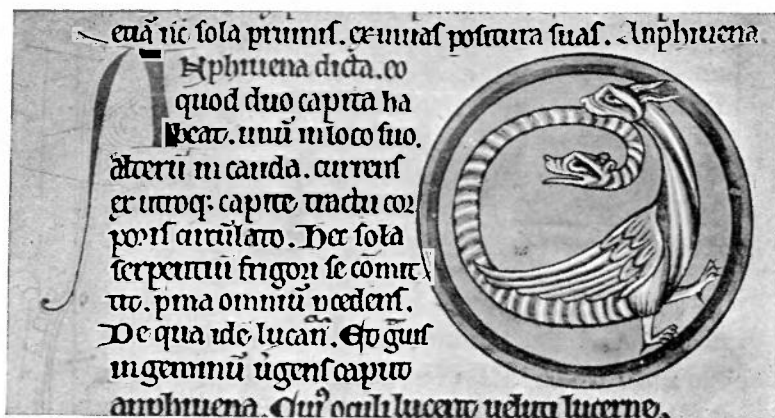 etiā nc sola pruinis. exuuias positura suas. Anphiuena
ANphiuena dicta. eo
quod duo capita ha
beat. unū in loco suo.
alterū in cauda. currens
ex utroq; capite tractu cor
poris circulato. Hec sola
serpentiū frigori se cōmit
tit. pͥma omniū p̄cedens.
De qua idē lucan̄. Et gͣuis
in geminū ūgens caput
anphiuena. Cuiꝰ oculi lucent ueluti lucerne.